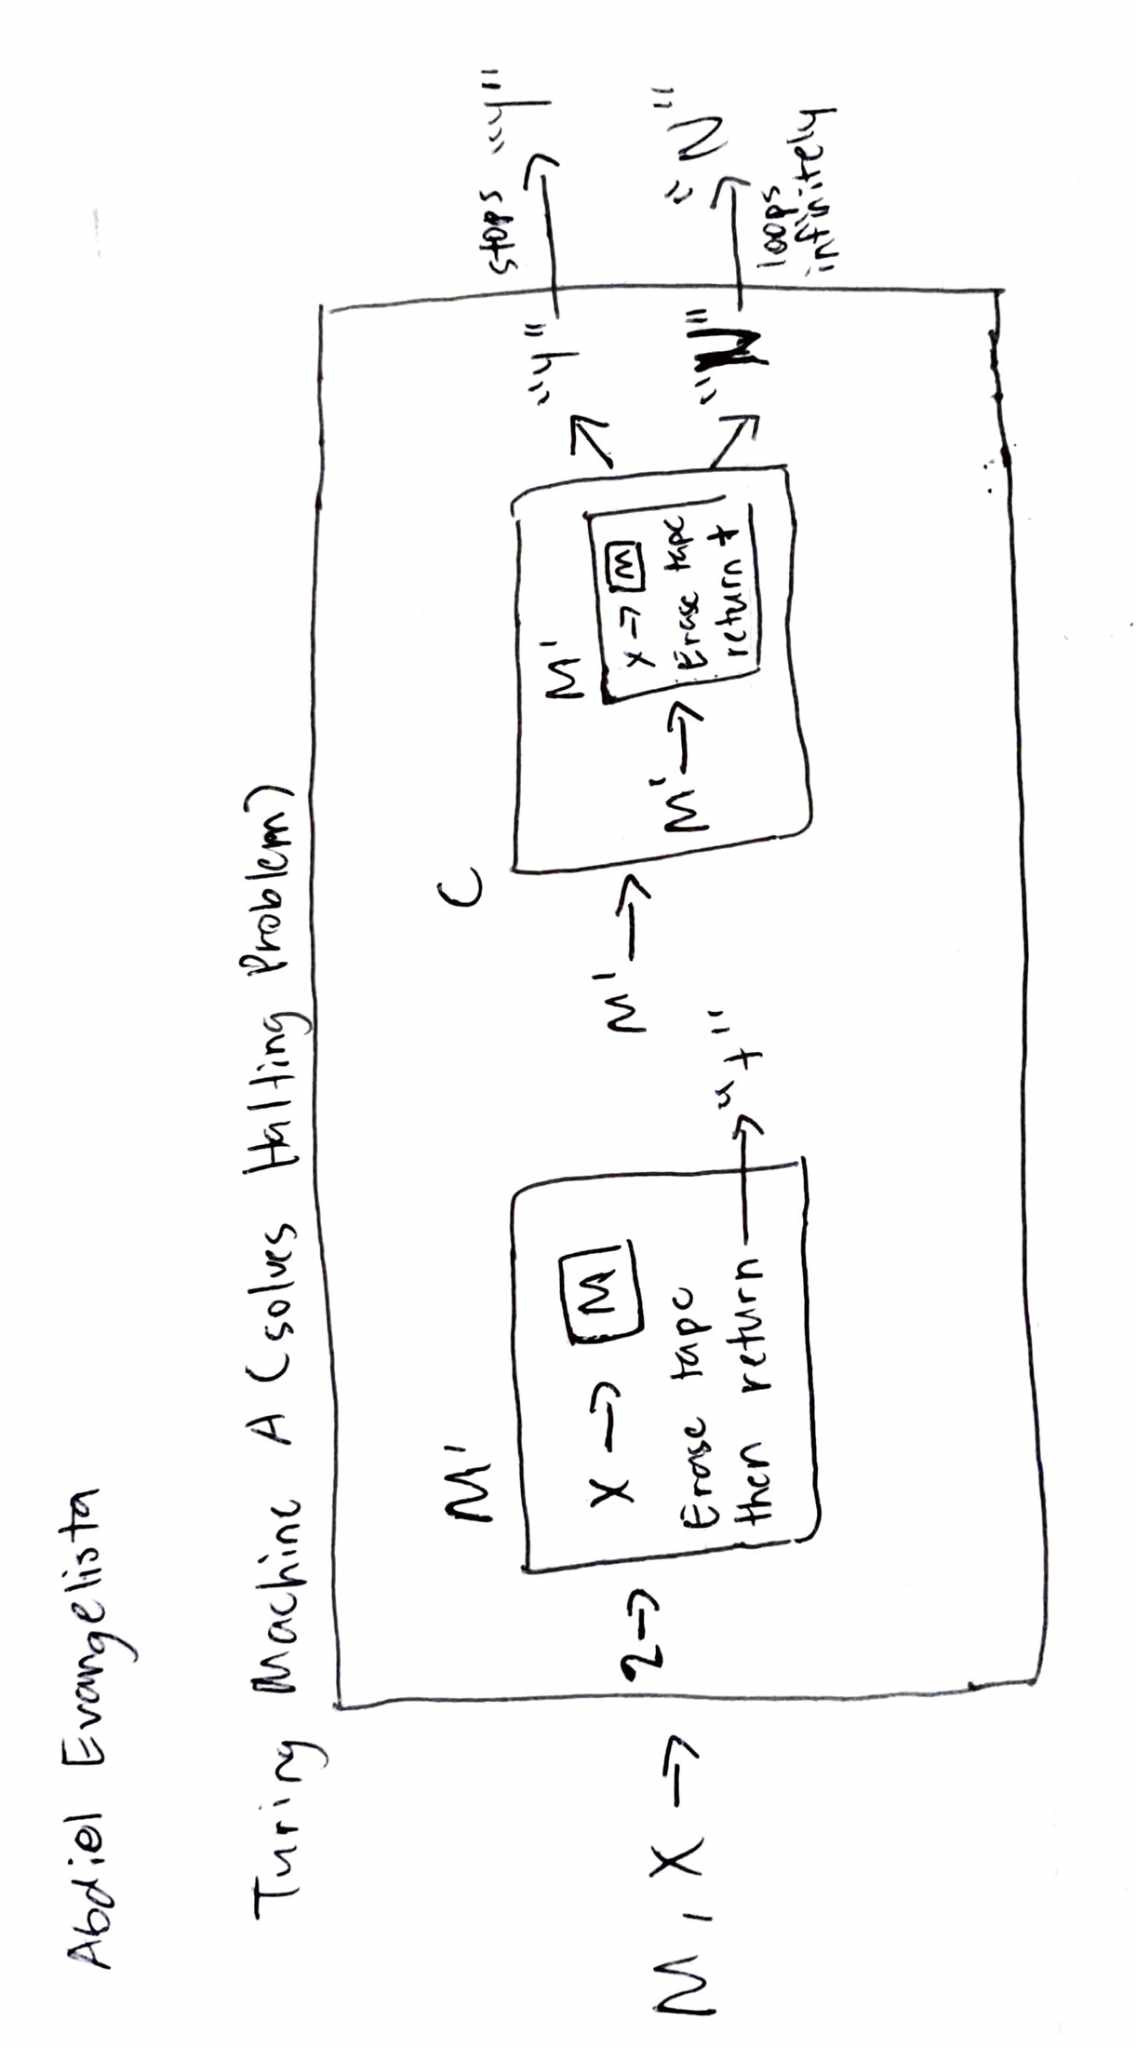 Abdiel Evangelista
Turing Machine A (solves Halting Problem)
M'
C
M, X →
2 →
X → M
Erase tape
then return → "+"
M' →
M'
M' →
X → M
Erase tape
return +
"Y"
stops
"Y"
"N"
loops
infinitely
"N"